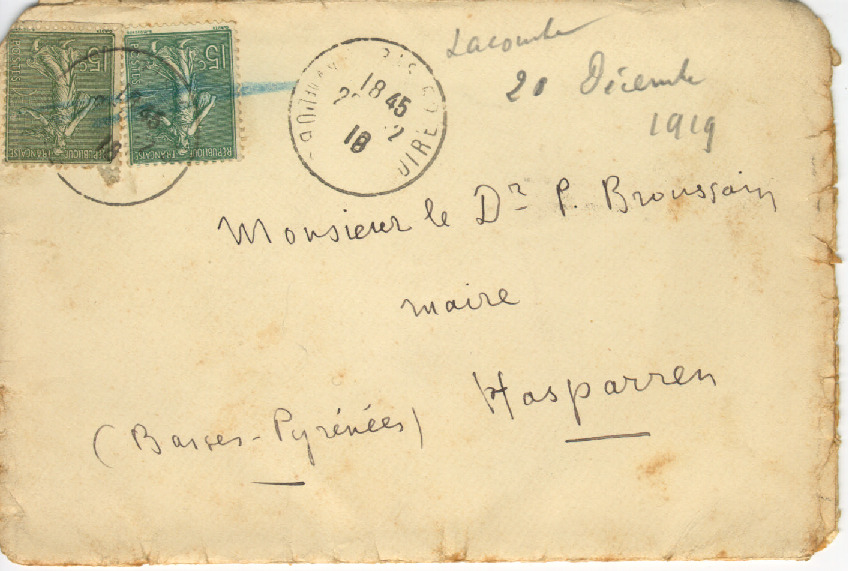 15c
RÉPUBLIQUE FRANÇAISE
15c
RÉPUBLIQUE FRANÇAISE
18 45
Lacombe
20 Décembre
1919
Monsieur le Dr P. Broussain
maire
Hasparren
(Basses-Pyrénées)